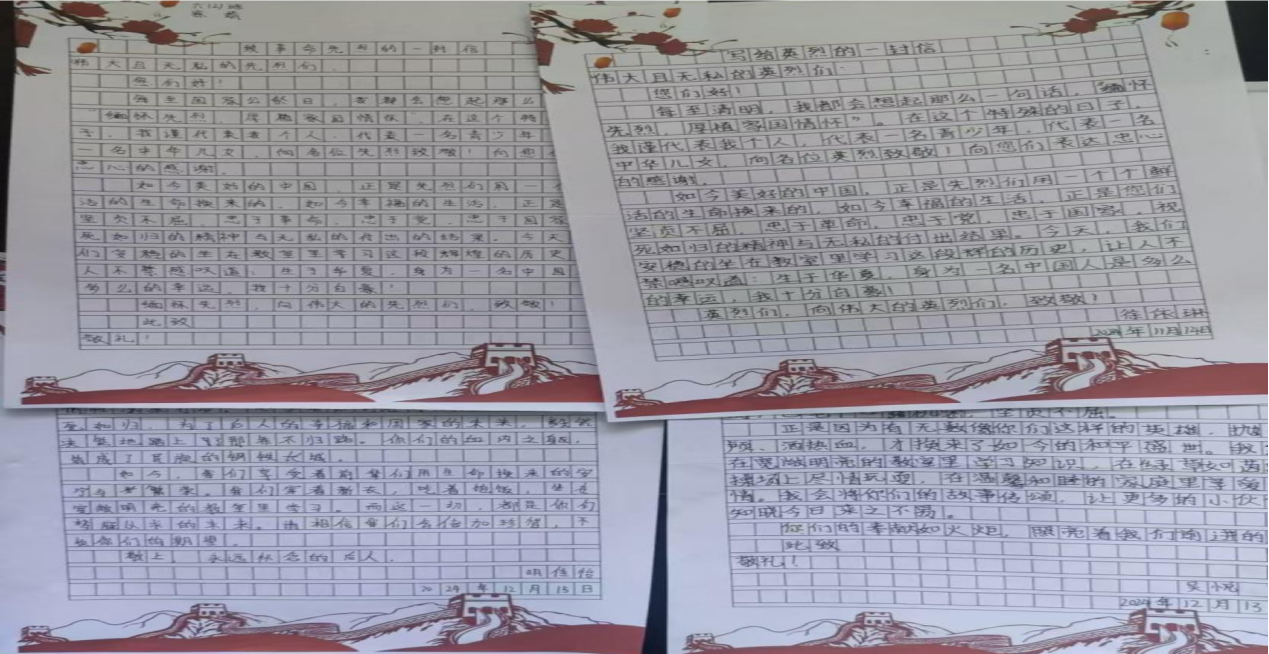 六(2)班
致革命先烈的一封信
伟大且无私的先烈们
您们好!
每至国家公祭日,我都会想起那么
“缅怀先烈,厚植家国情怀”在这个特
子,我谨代表我个人,代表一名青少年
一名中华儿女,向各位先烈致敬!向您
忠心的感谢。
如今美好的中国,正是先烈们用一
活的生命换来的,如今幸福的生活,正是
坚贞不屈,忠于革命,忠于党,忠于国家
死如归的精神与无私的付出的结果。今天
们安稳的坐在教室里学习这段辉煌的历史
人不禁感叹道:生于华夏,身为一名中国
多么的幸运,我十分自豪!
缅怀先烈,向伟大的先烈们,致敬!
此致
敬礼!
写给英烈的一封信
伟大且无私的英烈们:
您们好!
每至清明,我都会想起那么一句话,“缅怀
先烈,厚植家国情怀”。在这个特殊的日子,
我谨代表我个人,代表一名青少年,代表一名
中华儿女,向各位英烈致敬!向您们表达忠心
的感谢。
如今美好的中国,正是先烈们用一个个鲜
活的生命换来的,如今幸福的生活,正是您们
坚贞不屈,忠于革命,忠于党,忠于国家,视
死如归的精神与无私的付出结果。今天,我们
安稳的坐在教室里学习这段辉煌的历史,让人不
禁感叹道:生于华夏,身为一名中国人是多么
的幸运,我十分自豪!
英烈们,向伟大的英烈们,致敬!
徐依琳
2024年11月14日
死如归,为了后人的幸福和国家的未来,毅然
决然地踏上了那条不归路。你们的血肉之躯,
筑成了真正的钢铁长城。
如今,我们享受着前辈们用生命换来的安
宁与繁荣。我们穿着新衣,吃着饱饭,坐在
宽敞明亮的教室里学习。而这一切,都是你们
当年的未来。请相信我们会倍加珍惜,不
负你们的期望。
敬上,永远怀念的后人,
胡佳怡
2024年12月13日
坚贞不屈。
正是因为有无数像你们这样的英雄,抛头
颅、洒热血,才换来了如今的和平盛世。我
在宽敞明亮的教室里学习知识,在绿草如茵
操场上尽情玩耍,在温馨和睦的家庭里享受
情。我会将你们的故事传颂,让更多的小伙
知晓今日来之不易。
您们的奉献如火炬,照亮着我们前进的
此致
敬礼!
吴悦
2024年12月13